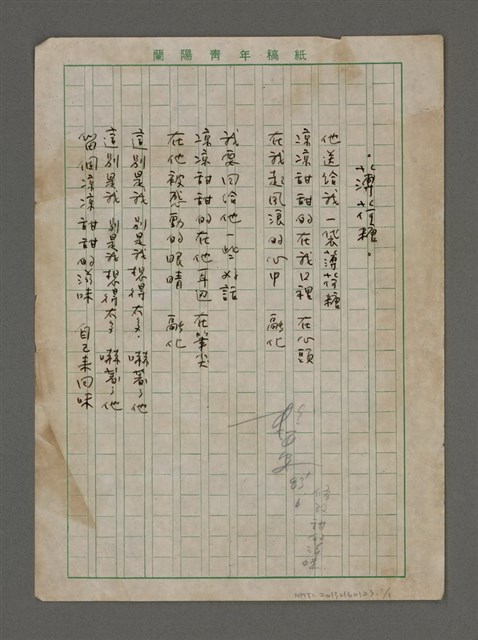 蘭陽青年稿紙
·薄荷糖·
他送給我一袋薄荷糖
涼涼甜甜的在我口裡 在心頭
在我起風浪的心中 融化
我要回給他一些好話
涼涼甜甜的在他耳邊 在筆尖
在他被感動的眼睛 融化
這別是我 別是我想得太多 嚇著了他
這別是我 別是我想得太多 嚇著了他
留個涼涼甜甜的滋味 自己來回味